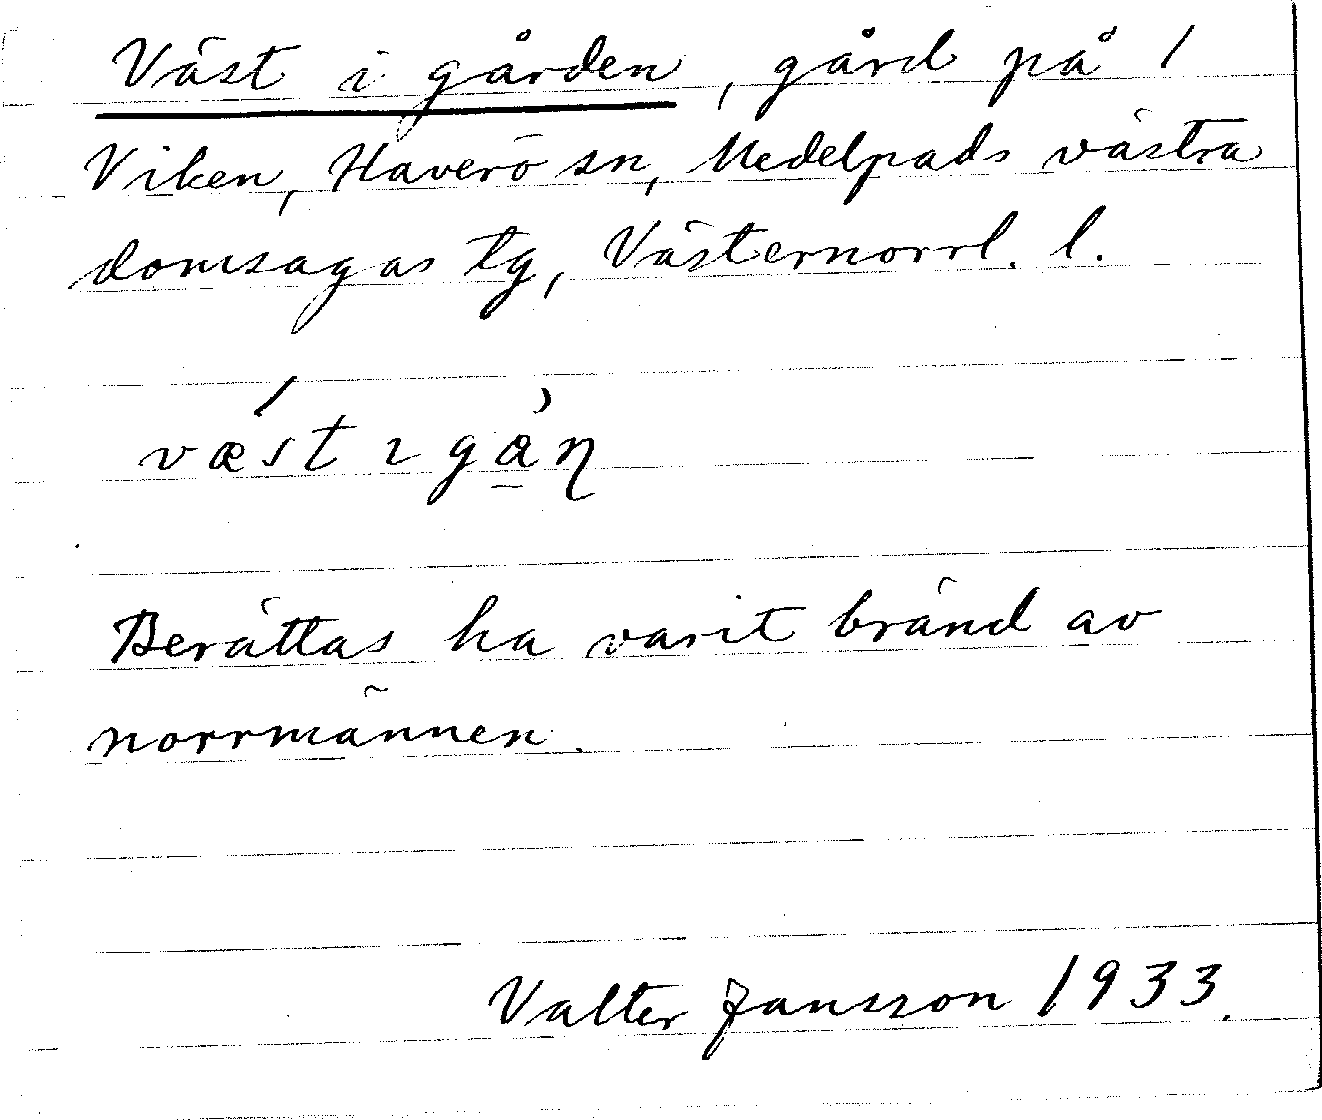 Väst i gården, gård på 1
Viken, Haverö sn, Medelpads västra
domsagas tg, Västernorrl. l.
Berättas ha varit bränd av
norrmännen.
Valter Jansson 1933.